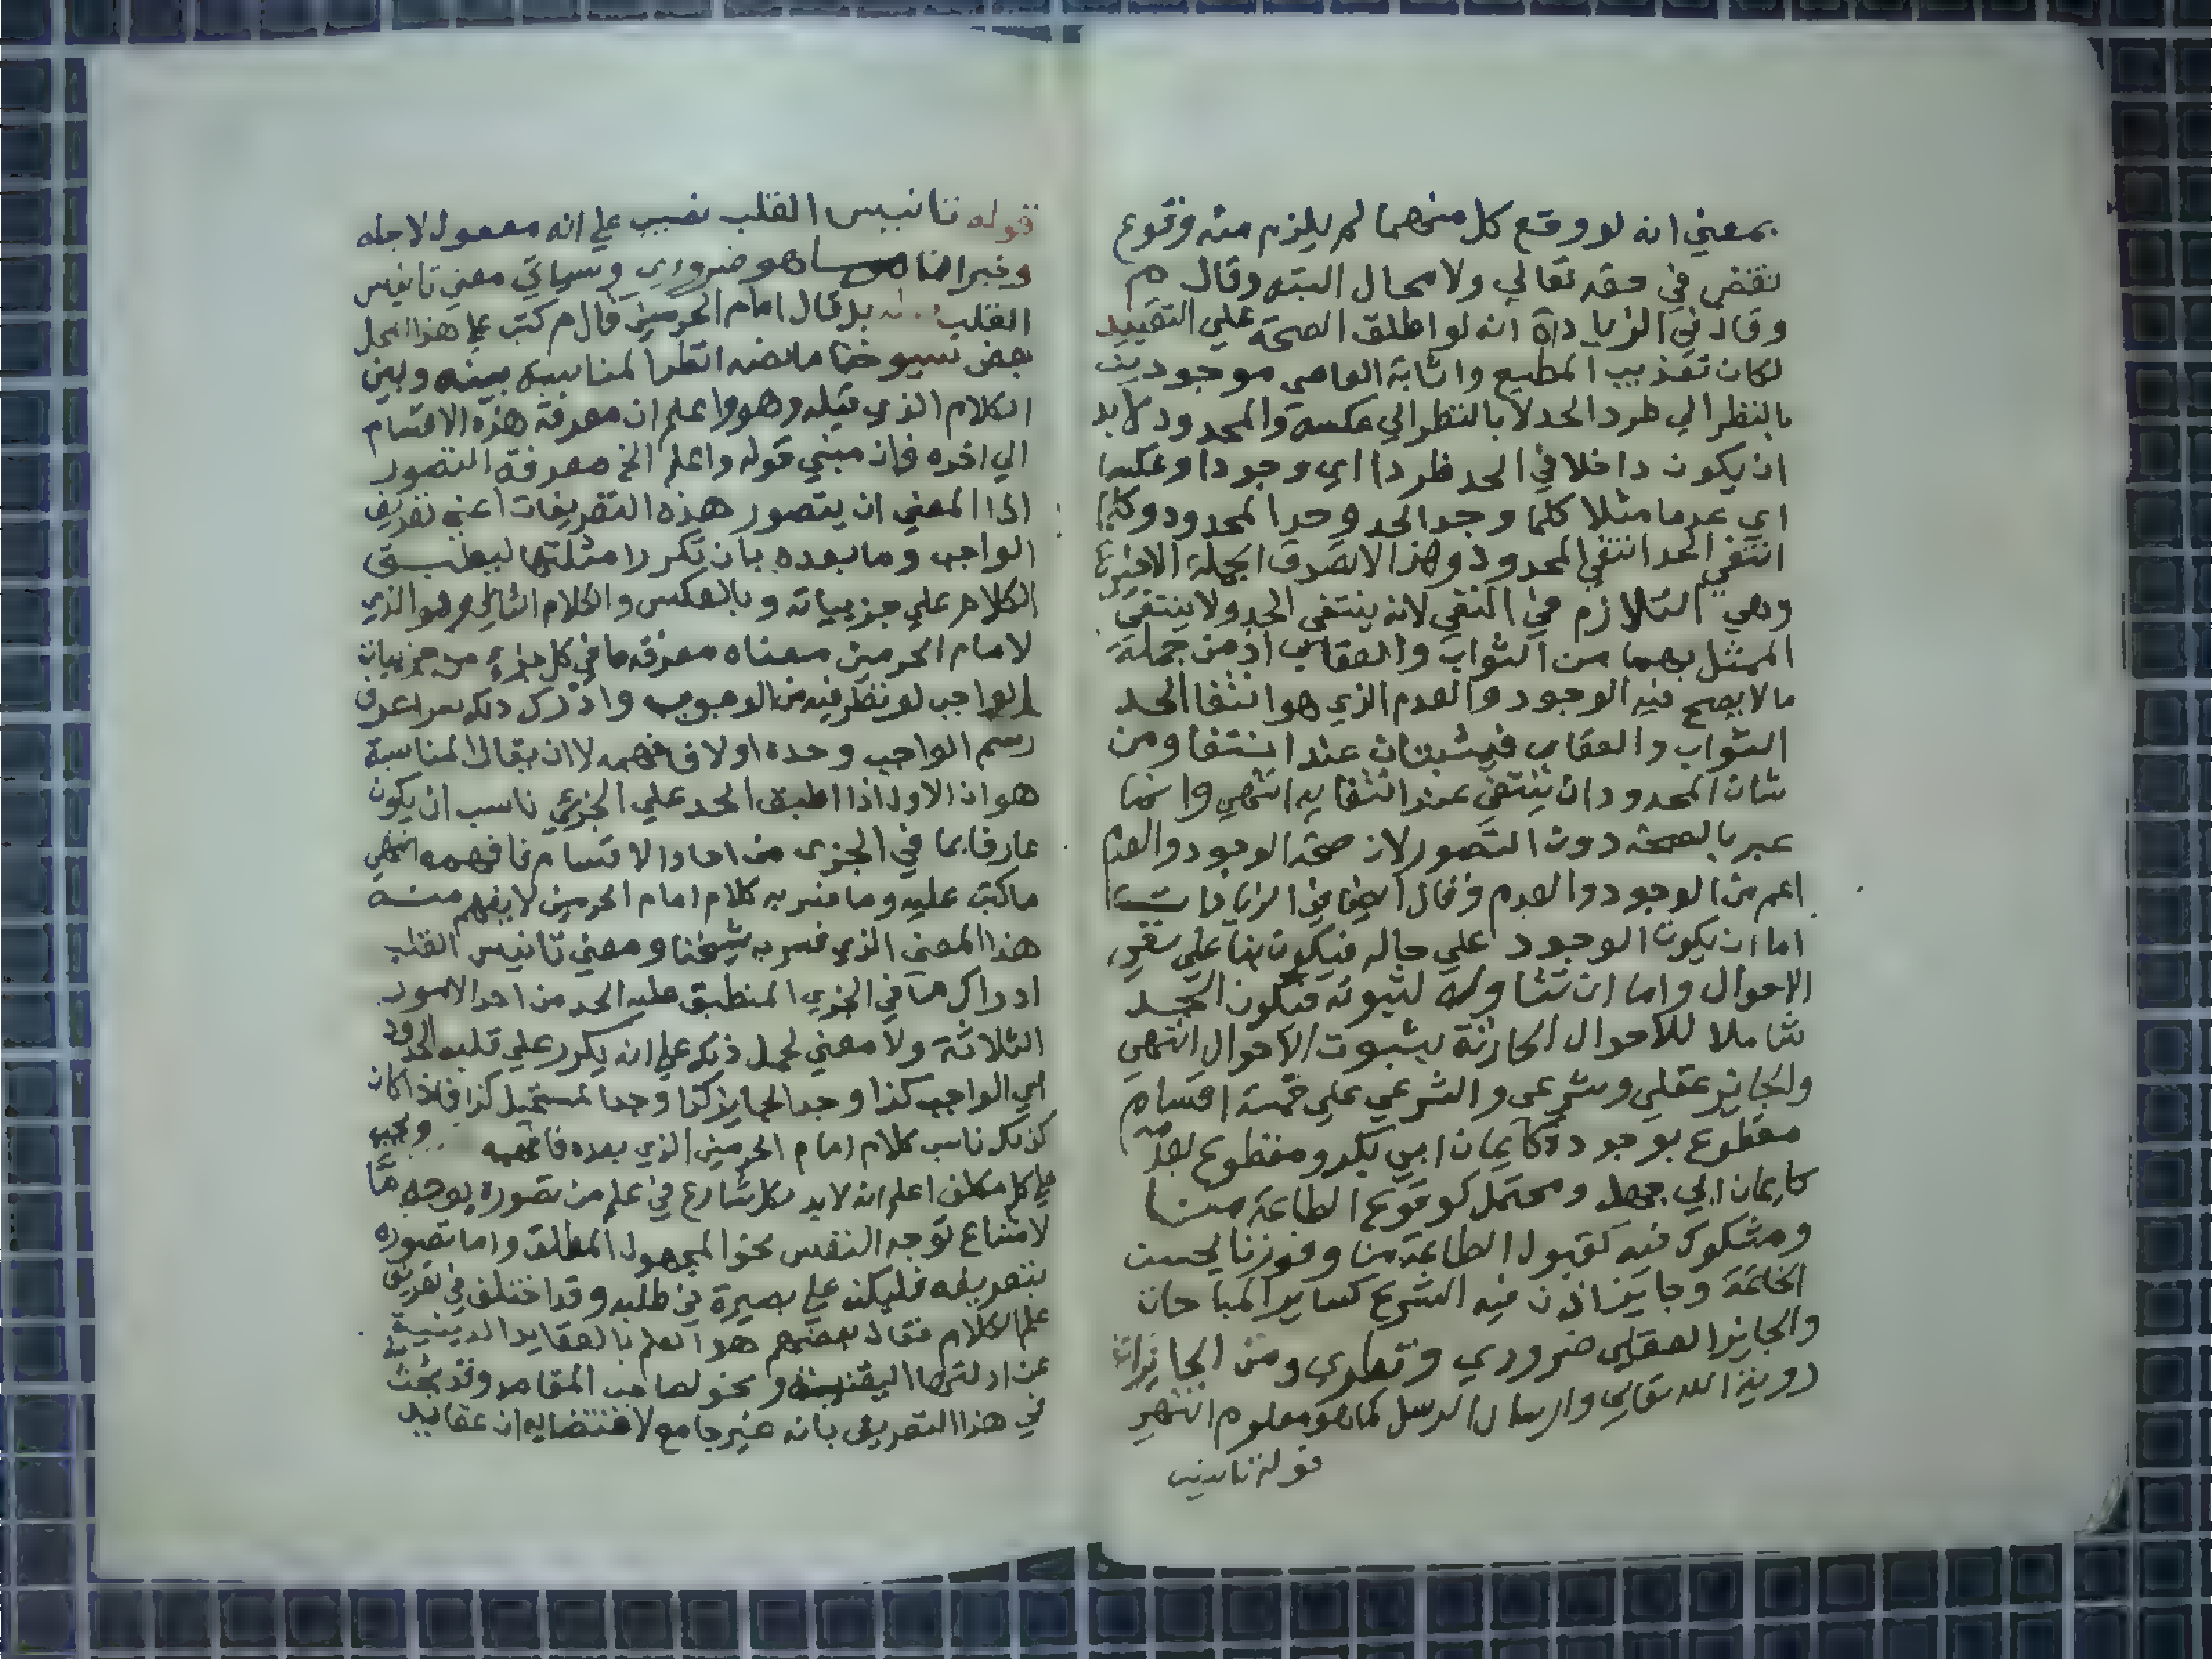 بمعني انه لو وقع كل منهما لم يلزم منه وقوع
نقض في حقه تعالي ولا محال البته وقال م
وقال في الزيادة انه لو اطلق الصحة علي التقييد
لكان تعذيب المطيع واثابة العاصي موجودين
بالنظر الي طرد الحد لا بالنظر الي عكسه والمحدود لا بد
ان يكون داخلا في الحد طردا اي وجودا وعكسا
اي عدما مثلا كلما وجد الحد وجد المحدود وكلما
انتفي الحد انتفي المحدود وهذا لا يصدق الجملة الاخيرة
وهي التلازم في النفي لانه ينتفي الحد ولا ينتفي
الممثل بهما من الثواب والعقاب اذ من جملة
ما لا يصح فيه الوجود والعدم الذي هو انتفا الحد
الثواب والعقاب فيثبتان عند انتفا ومن
شان المحدود ان ينتفي عند انتفايه انتهي وانما
عبر بالصحة دون التصور لان صحة الوجود والعدم
اعم من الوجود والعدم وقال ايضا في الزيادات
اما ان يكون الوجود علي حاله فيكون بنا علي نفي
الاحوال واما ان تتناوله لثبوته فيكون الحد
شاملا للاحوال الحادثة بثبوت الاحوال انتهي
والجايز عقلي وشرعي والشرعي علي خمسة اقسام
مقطوع بوجوده كايمان ابي بكر ومقطوع بعدمه
كايمان ابي جهل ومحتمل كوقوع الطاعة منا
ومشكوك فيه كقبول الطاعة منا وفوزنا بحسن
الخاتمة وجايز اذن فيه الشرع كساير المباحات
والجايز العقلي ضروري ونظري ومن الجايزات
روية الله تعالي وارسال الرسل كما هو معلوم انتهي
قوله تانيس
قوله تانيس القلب نصب علي انه مفعول لاجله
وخبر ان هو ضروري وسياتي معني تانيس
القلب بل قال امام الحرمين قال م كتب علي هذا المحل
بعض شيوخنا ما نصه انظر المناسبة بينه وبين
الكلام الذي قبله وهو واعلم ان معرفة هذه الاقسام
الي اخره فان مبني قوله واعلم الخ معرفة التصور
اذ المعني ان يتصور هذه التعريفات اعني تعريف
الواجب وما بعده بان تكرر امثلتها ليطبق
الكلام علي جزيياته وبالعكس والكلام الثاني وهو الذي
لامام الحرمين معناه معرفة ما في كل جزء من جزييات
الواجب لو نظر فيه من الوجوب وادرك ذلك سوا عرف
رسم الواجب وحده اولا فافهمه لا ان يقال المناسبة
هو ان الاول اذا اطبق الحد علي الجزئي ناسب ان يكون
عارفا بما في الجزي من احاد الاقسام فافهمه انتهي
ما كتب عليه وما فسر به كلام امام الحرمين لا يفهم منه
هذا المعني الذي فسر به شيخنا ومعني تانيس القلب
ادراك ما في الجزي المنطبق عليه الحد من احد الامور
الثلاثة ولا معني لحمل ذلك علي ان يكرر علي قلبه الحدود
اي الواجب كذا وحد الجايز كذا وحد المستحيل كذا فاذا كان
كذلك ناسب كلام امام الحرمين الذي بعده فافهمه ويجب
علي كل مكلف اعلم انه لا بد لكل شارع في علم من تصوره بوجه ما
لامتناع توجه النفس نحو المجهول المطلق واما تصوره
بتعريفه فليكن علي بصيرة في طلبه وقد اختلف في تعريف
علم الكلام فقال بعضهم هو العلم بالعقايد الدينية
عن ادلتها اليقينية ونحو لصاحب المقاصد وقد بحث
في هذا التعريف بانه غير جامع لاقتضايه ان عقايد